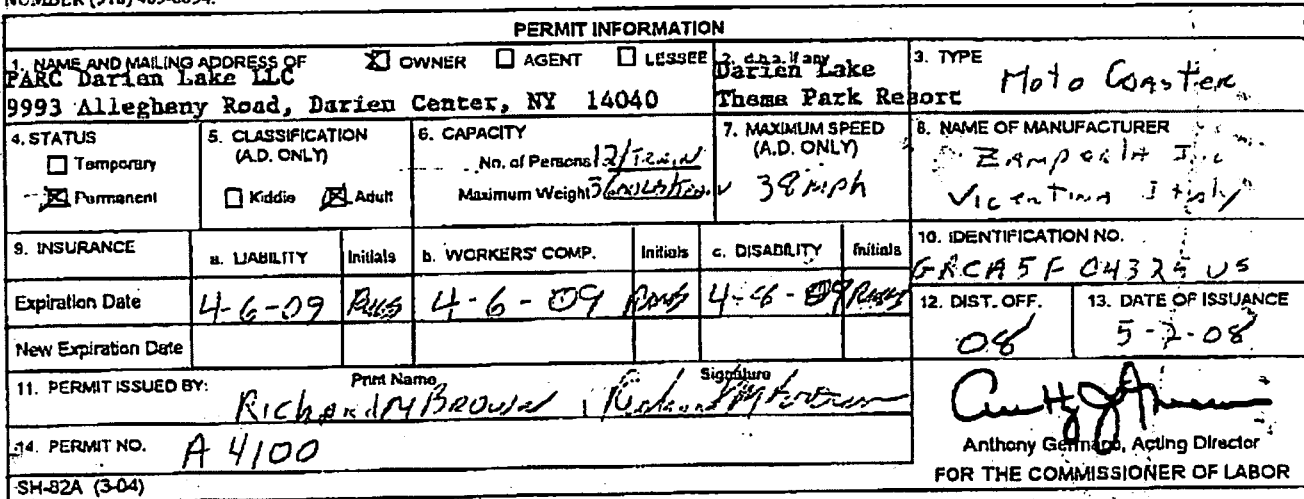 NUMBER (518) 485-8894.
PERMIT INFORMATION
1. NAME AND MAILING ADDRESS OF OWNER AGENT LESSEE
PARC Darien Lake LLC
9993 Allegheny Road, Darien Center, NY 14040
2. d.b.a. if any
Darien Lake
Theme Park Resort
3. TYPE
Moto Coaster
4. STATUS
Temporary
Permanent
5. CLASSIFICATION
(A.D. ONLY)
Kiddie Adult
6. CAPACITY
No. of Persons 12/Train
Maximum Weight
7. MAXIMUM SPEED
(A.D. ONLY)
38 mph
8. NAME OF MANUFACTURER
Zamperla Inc
Vicentina Italy
9. INSURANCE a. LIABILITY Initials b. WORKERS' COMP. Initials c. DISABILITY Initials
Expiration Date 4-6-09 RMB 4-6-09 RMB 4-6-09 RMB
New Expiration Date
10. IDENTIFICATION NO.
GRCA5F04325US
12. DIST. OFF.
08
13. DATE OF ISSUANCE
5-2-08
11. PERMIT ISSUED BY: Print Name Signature
Richard M Brown
14. PERMIT NO. A 4100
Anthony Germano, Acting Director
FOR THE COMMISSIONER OF LABOR
SH-82A (3-04)